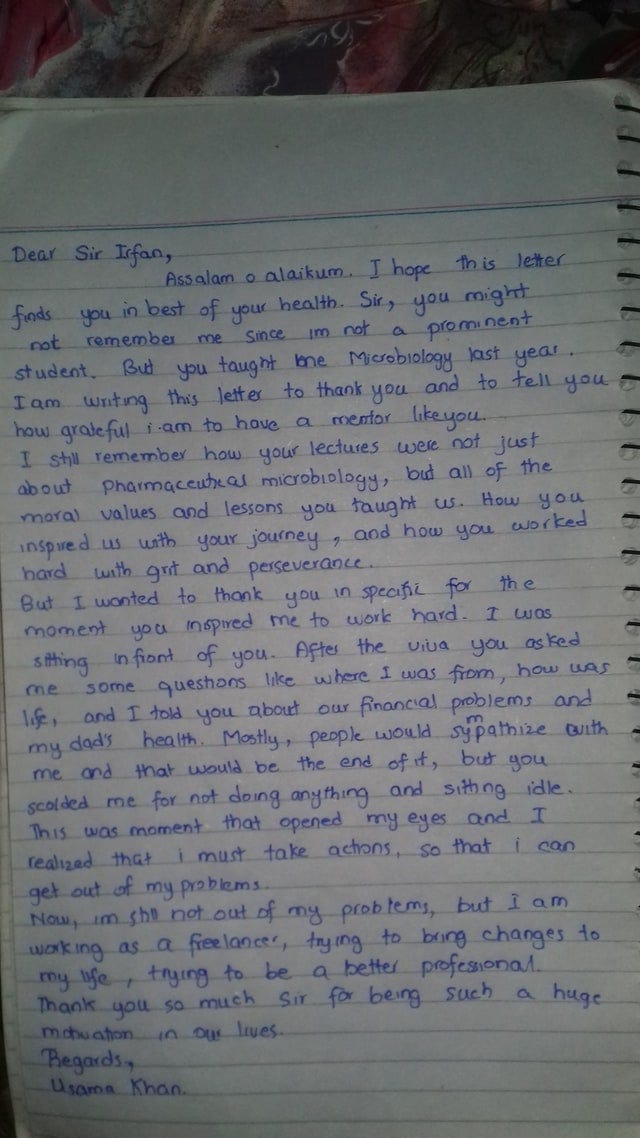 Dear Sir Irfan,
Assalam o alaikum. I hope this letter
finds you in best of your health. Sir, you might
not remember me since im not a prominent
student. But you taught me Microbiology last year.
I am writing this letter to thank you and to tell you
how grateful i am to have a mentor like you.
I still remember how your lectures were not just
about pharmaceutical microbiology, but all of the
moral values and lessons you taught us. How you
inspired us with your journey, and how you worked
hard with grit and perseverance.
But I wanted to thank you in specific for the
moment you inspired me to work hard. I was
sitting infront of you. After the viva you asked
me some questions like where I was from, how was
life, and I told you about our financial problems and
my dad's health. Mostly, people would sympathize with
me and that would be the end of it, but you
scolded me for not doing anything and sitting idle.
This was moment that opened my eyes and I
realized that i must take actions, so that i can
get out of my problems.
Now, im still not out of my problems, but I am
working as a freelancer, trying to bring changes to
my life, trying to be a better professional.
Thank you so much Sir for being such a huge
motivation in our lives.
Regards,
Usama Khan.